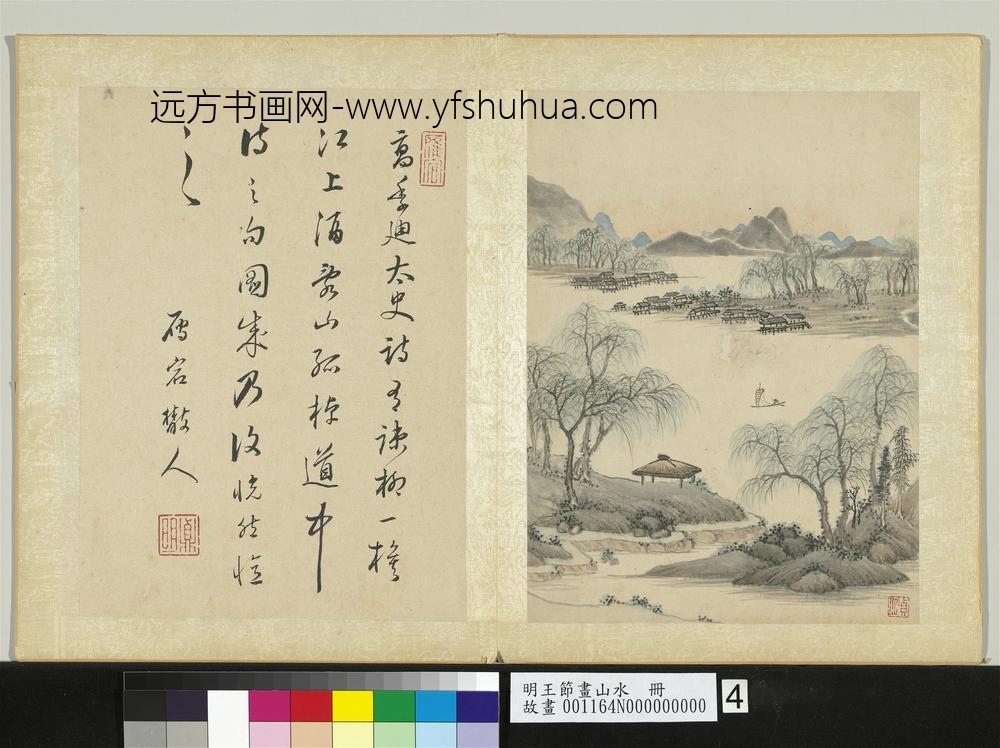 远方书画网-www.yfshuhua.com
高季迪太史詩有疎柳一橋
江上酒亂山孤棹道中
詩之句圖成乃復恍然憶
之
人
明王節畫山水 冊
故畫001164N000000000
4